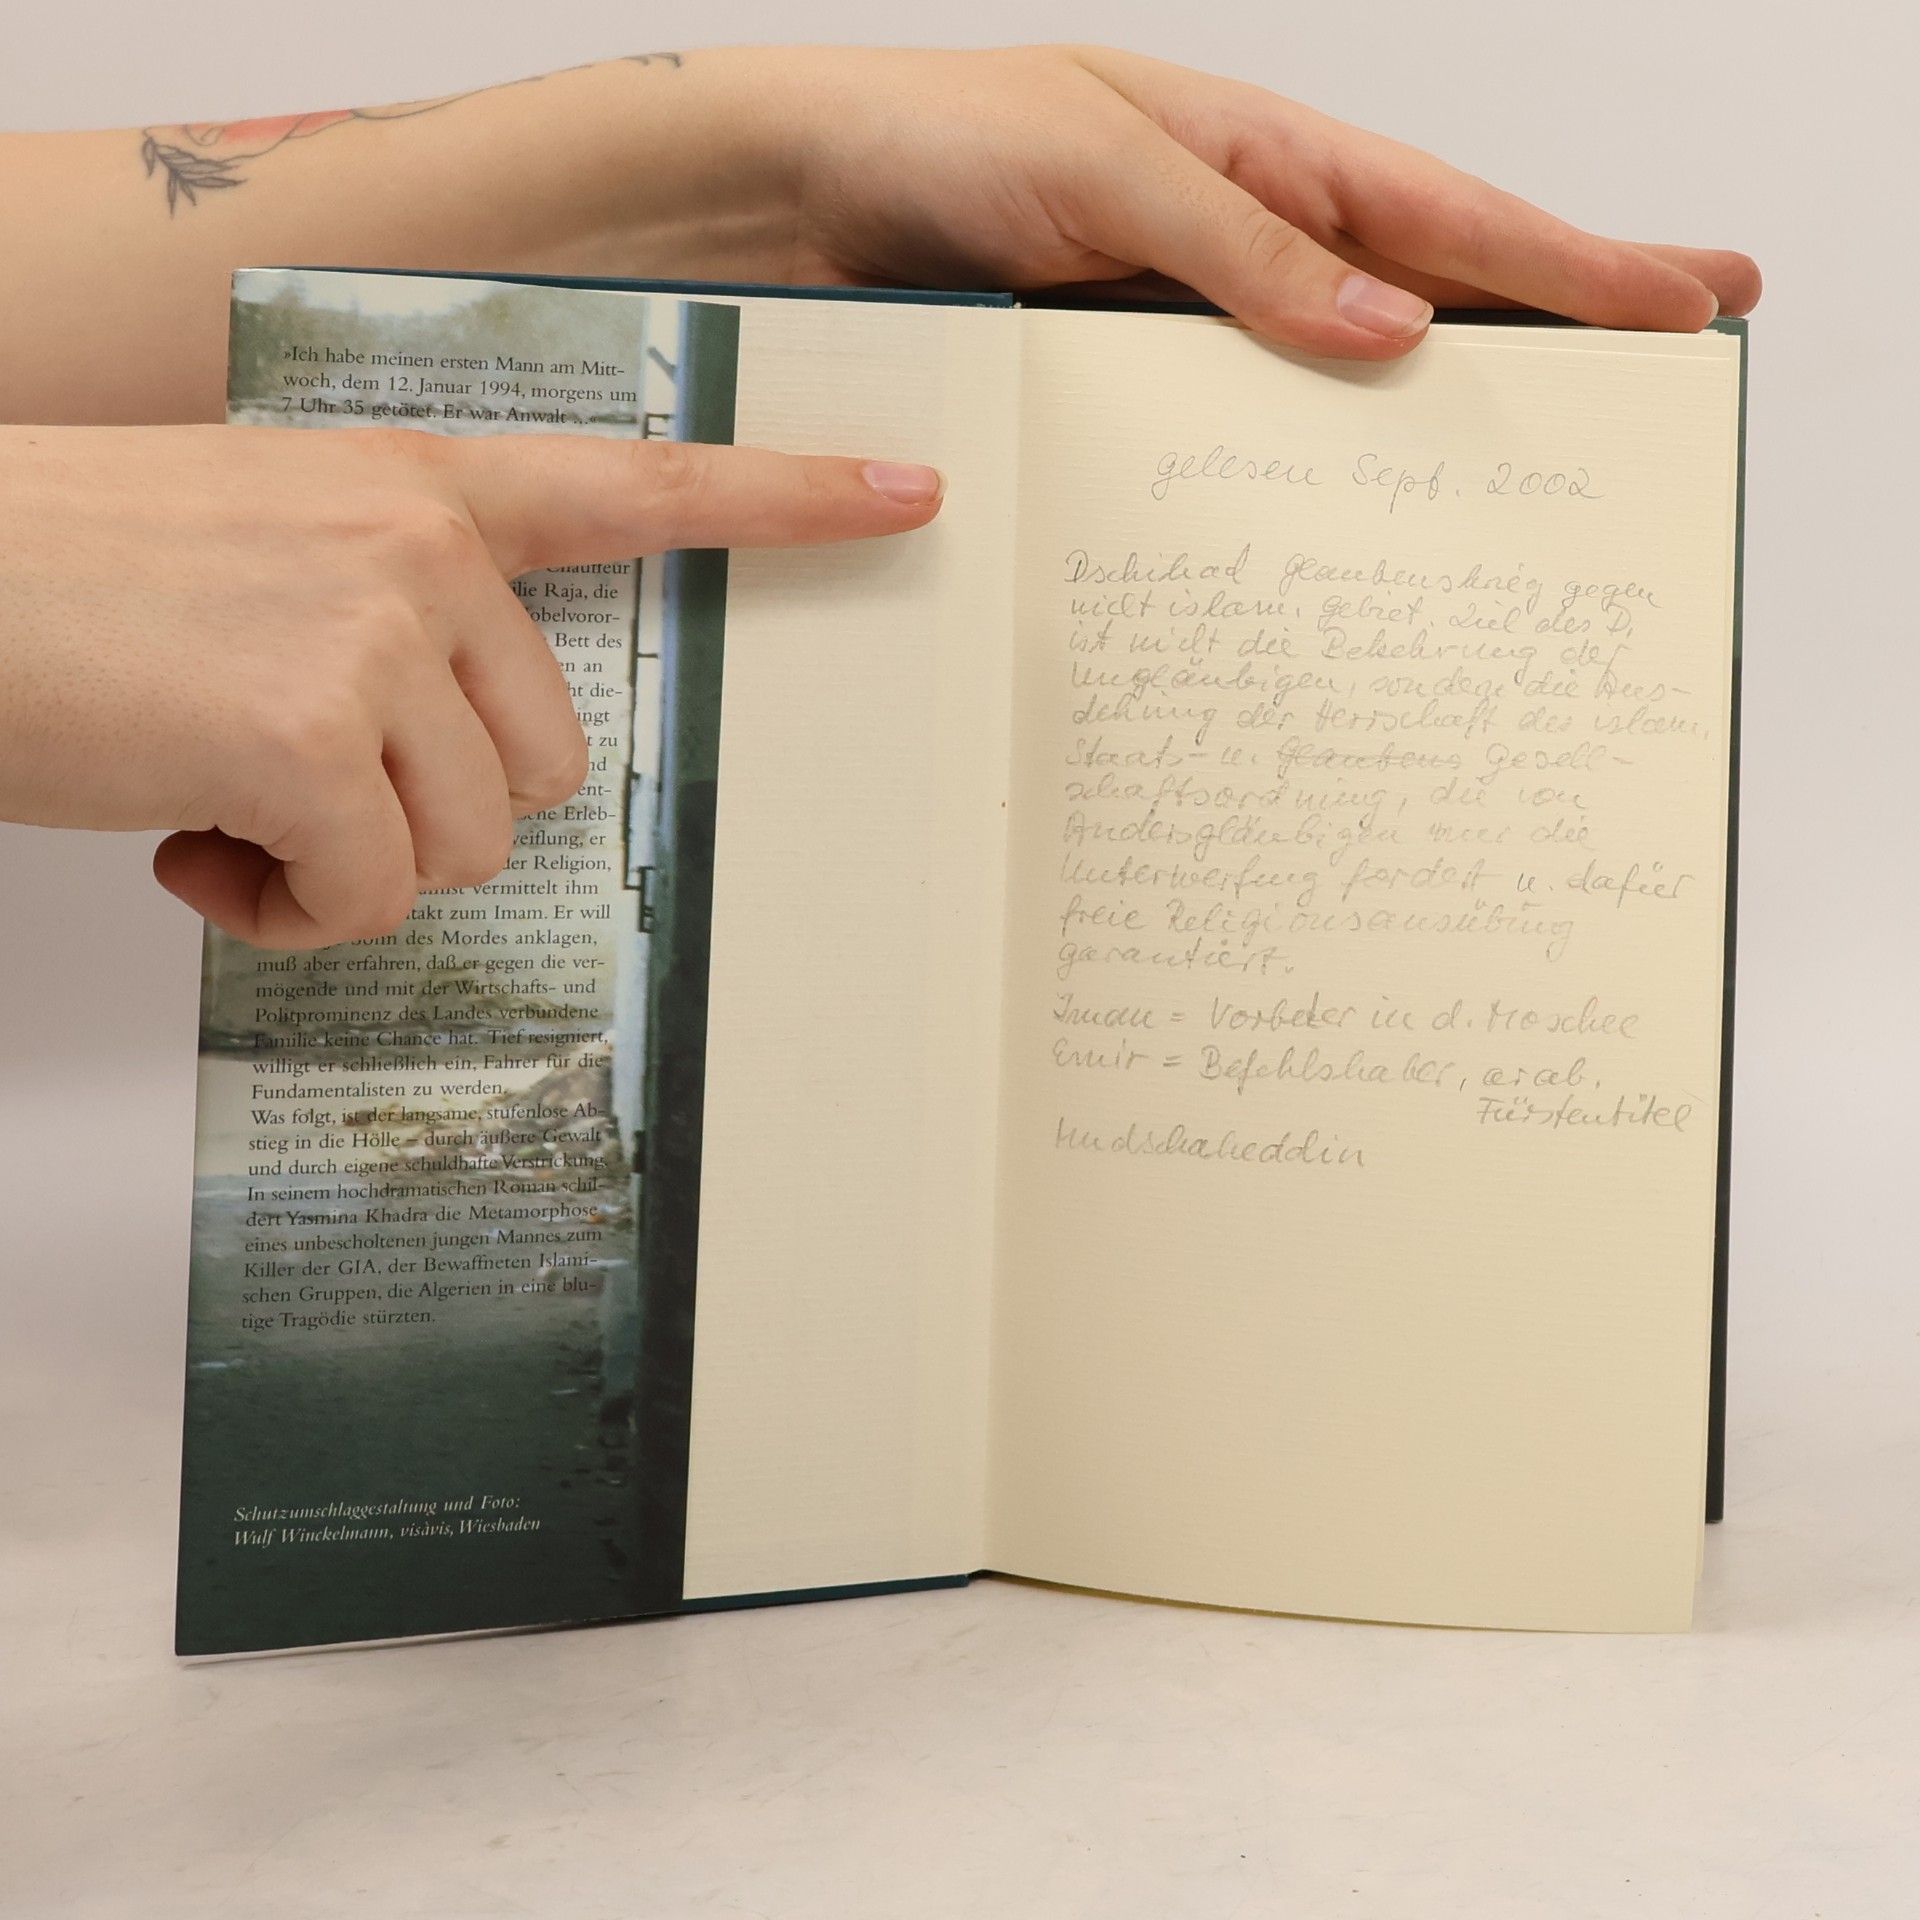 »Ich habe meinen ersten Mann am Mitt-
woch, dem 12. Januar 1994, morgens um
7 Uhr 35 getötet. Er war Anwalt ...«
Chauffeur
Raja, die
Bett des
an
die-
zu
Erleb-
er
der Religion,
vermittelt ihm
zum Imam. Er will
Sohn des Mordes anklagen,
muß aber erfahren, daß er gegen die ver-
mögende und mit der Wirtschafts- und
Politprominenz des Landes verbundene
Familie keine Chance hat. Tief resigniert,
willigt er schließlich ein, Fahrer für die
Fundamentalisten zu werden.
Was folgt, ist der langsame, stufenlose Ab-
stieg in die Hölle – durch äußere Gewalt
und durch eigene schuldhafte Verstrickung.
In seinem hochdramatischen Roman schil-
dert Yasmina Khadra die Metamorphose
eines unbescholtenen jungen Mannes zum
Killer der GIA, der Bewaffneten Islami-
schen Gruppen, die Algerien in eine blu-
tige Tragödie stürzten.
Schutzumschlaggestaltung und Foto:
Wulf Winckelmann, visàvis, Wiesbaden
gelesen Sept. 2002
Dschihad Glaubenskrieg gegen
nicht islam. Gebiet. Ziel des D.
ist nicht die Bekehrung der
Ungläubigen, sondern die Aus-
dehnung der Herrschaft des islam.
Staats- u. Glaubens Gesell-
schaftsordnung, die von
Andersgläubigen nur die
Unterwerfung fordert u. dafür
freie Religionsausübung
garantiert.
Iman = Vorbeter in d. Moschee
Emir = Befehlshaber, arab.
Fürstentitel
Mudschaheddin